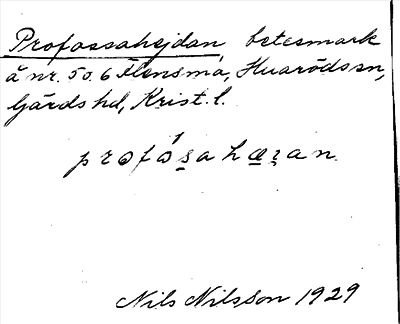 Profossahejdan, betesmark
å nr. 5 o. 6 Flensma, Huaröds sn,
Gärds hd, Krist. l.
profósahæʒan
Nils Nilsson 1929